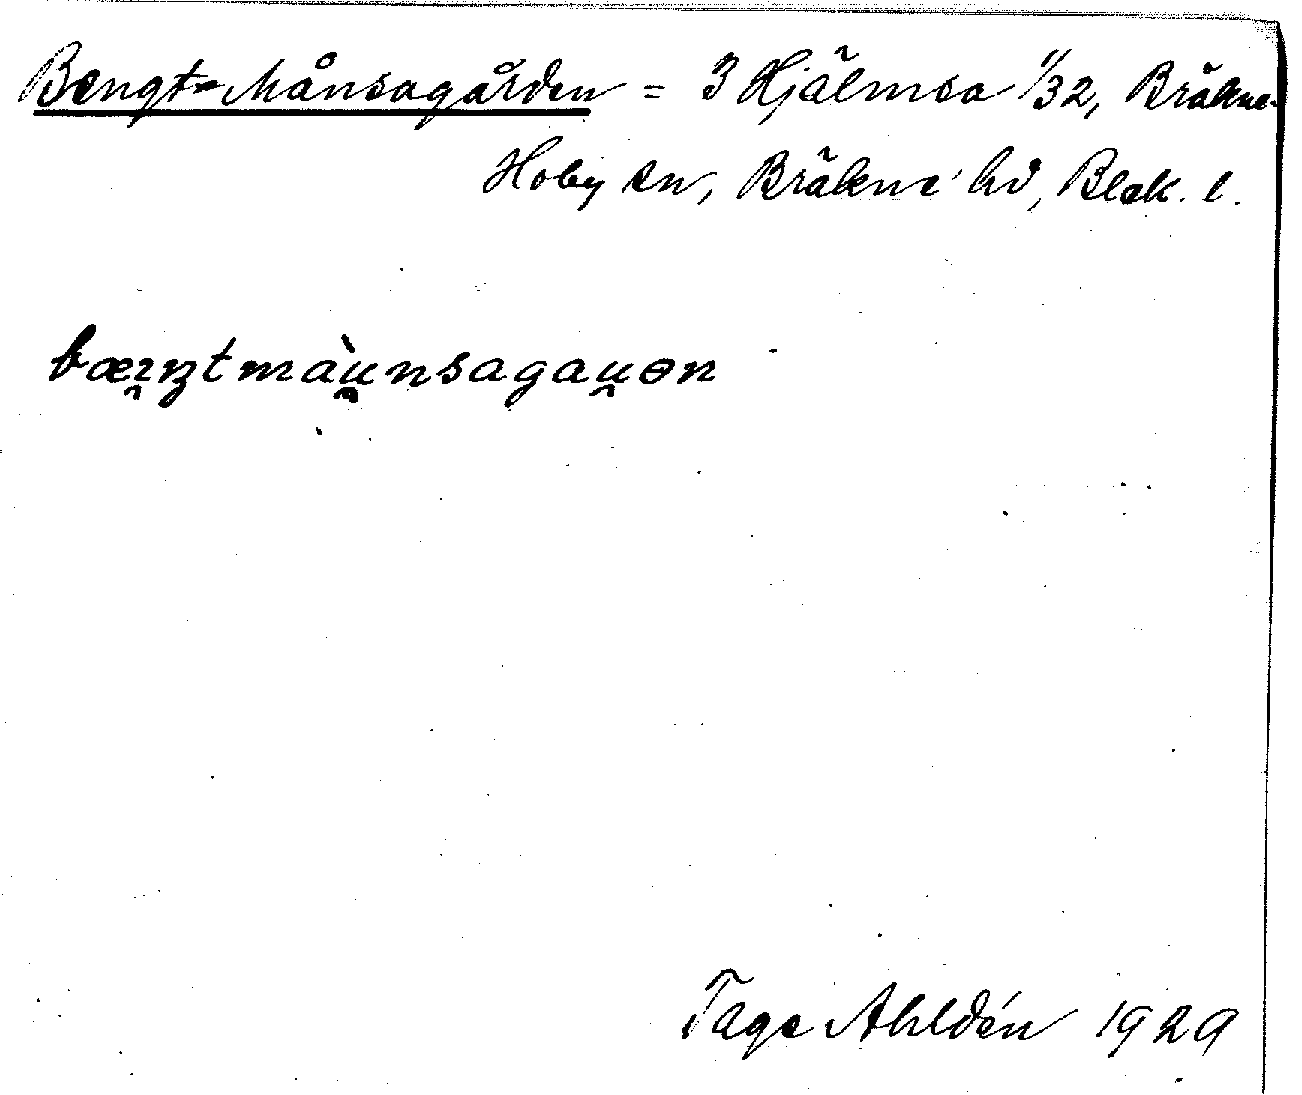 Bengt-Månsagården = 3 Hjälmsa 1/32, Bräkne-
Hoby sn, Bräkne hd, Blek. l.
Tage Ahldén 1929